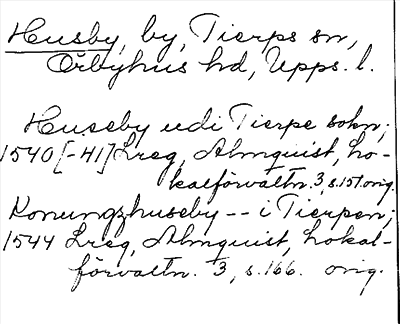 Husby, by, Tierps sn,
Örbyhus hd, Upps. l.
Huseby udi Tierpe sokn;
1540 [-41] Lreg, Almquist, Lo-
kalförvaltn. 3, s. 151. orig.
Konungzhuseby -- i Tierpen;
1544 Lreg, Almquist, Lokal-
förvaltn. 3, s. 166. orig.